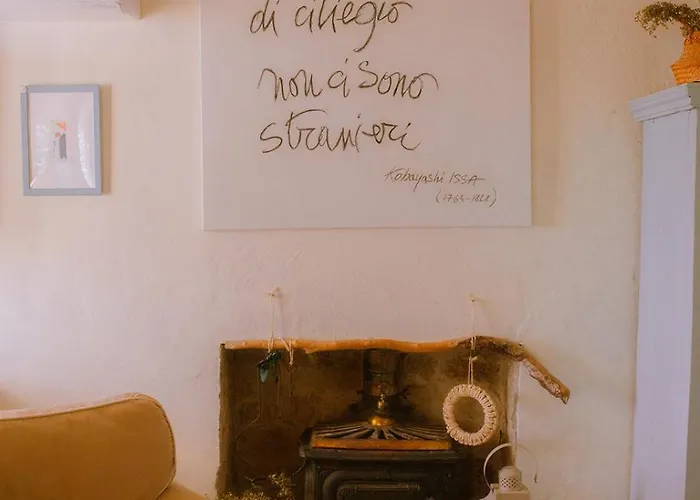 di ciliegio
non ci sono
stranieri
Kobayashi ISSA